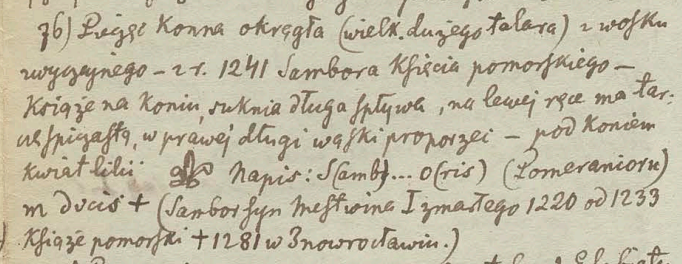 76) Pieczęć konna okrągła (wielk. dużego talara) z wosku
zwyczajnego – z r. 1241 Sambora Księcia pomorskiego –
Książe na koniu, suknia długa spływa, na lewej ręce ma tar-
czę śpiczastą, w prawej długi wąski proporzec – pod koniem
kwiat lilii Napis: S(amb)... o(ris) (Pomeranioru)
m ducis + (Sambor syn Mestwina I zmarłego 1220 od 1233
Książe pomorski + 1281 w Inowrocławiu.)